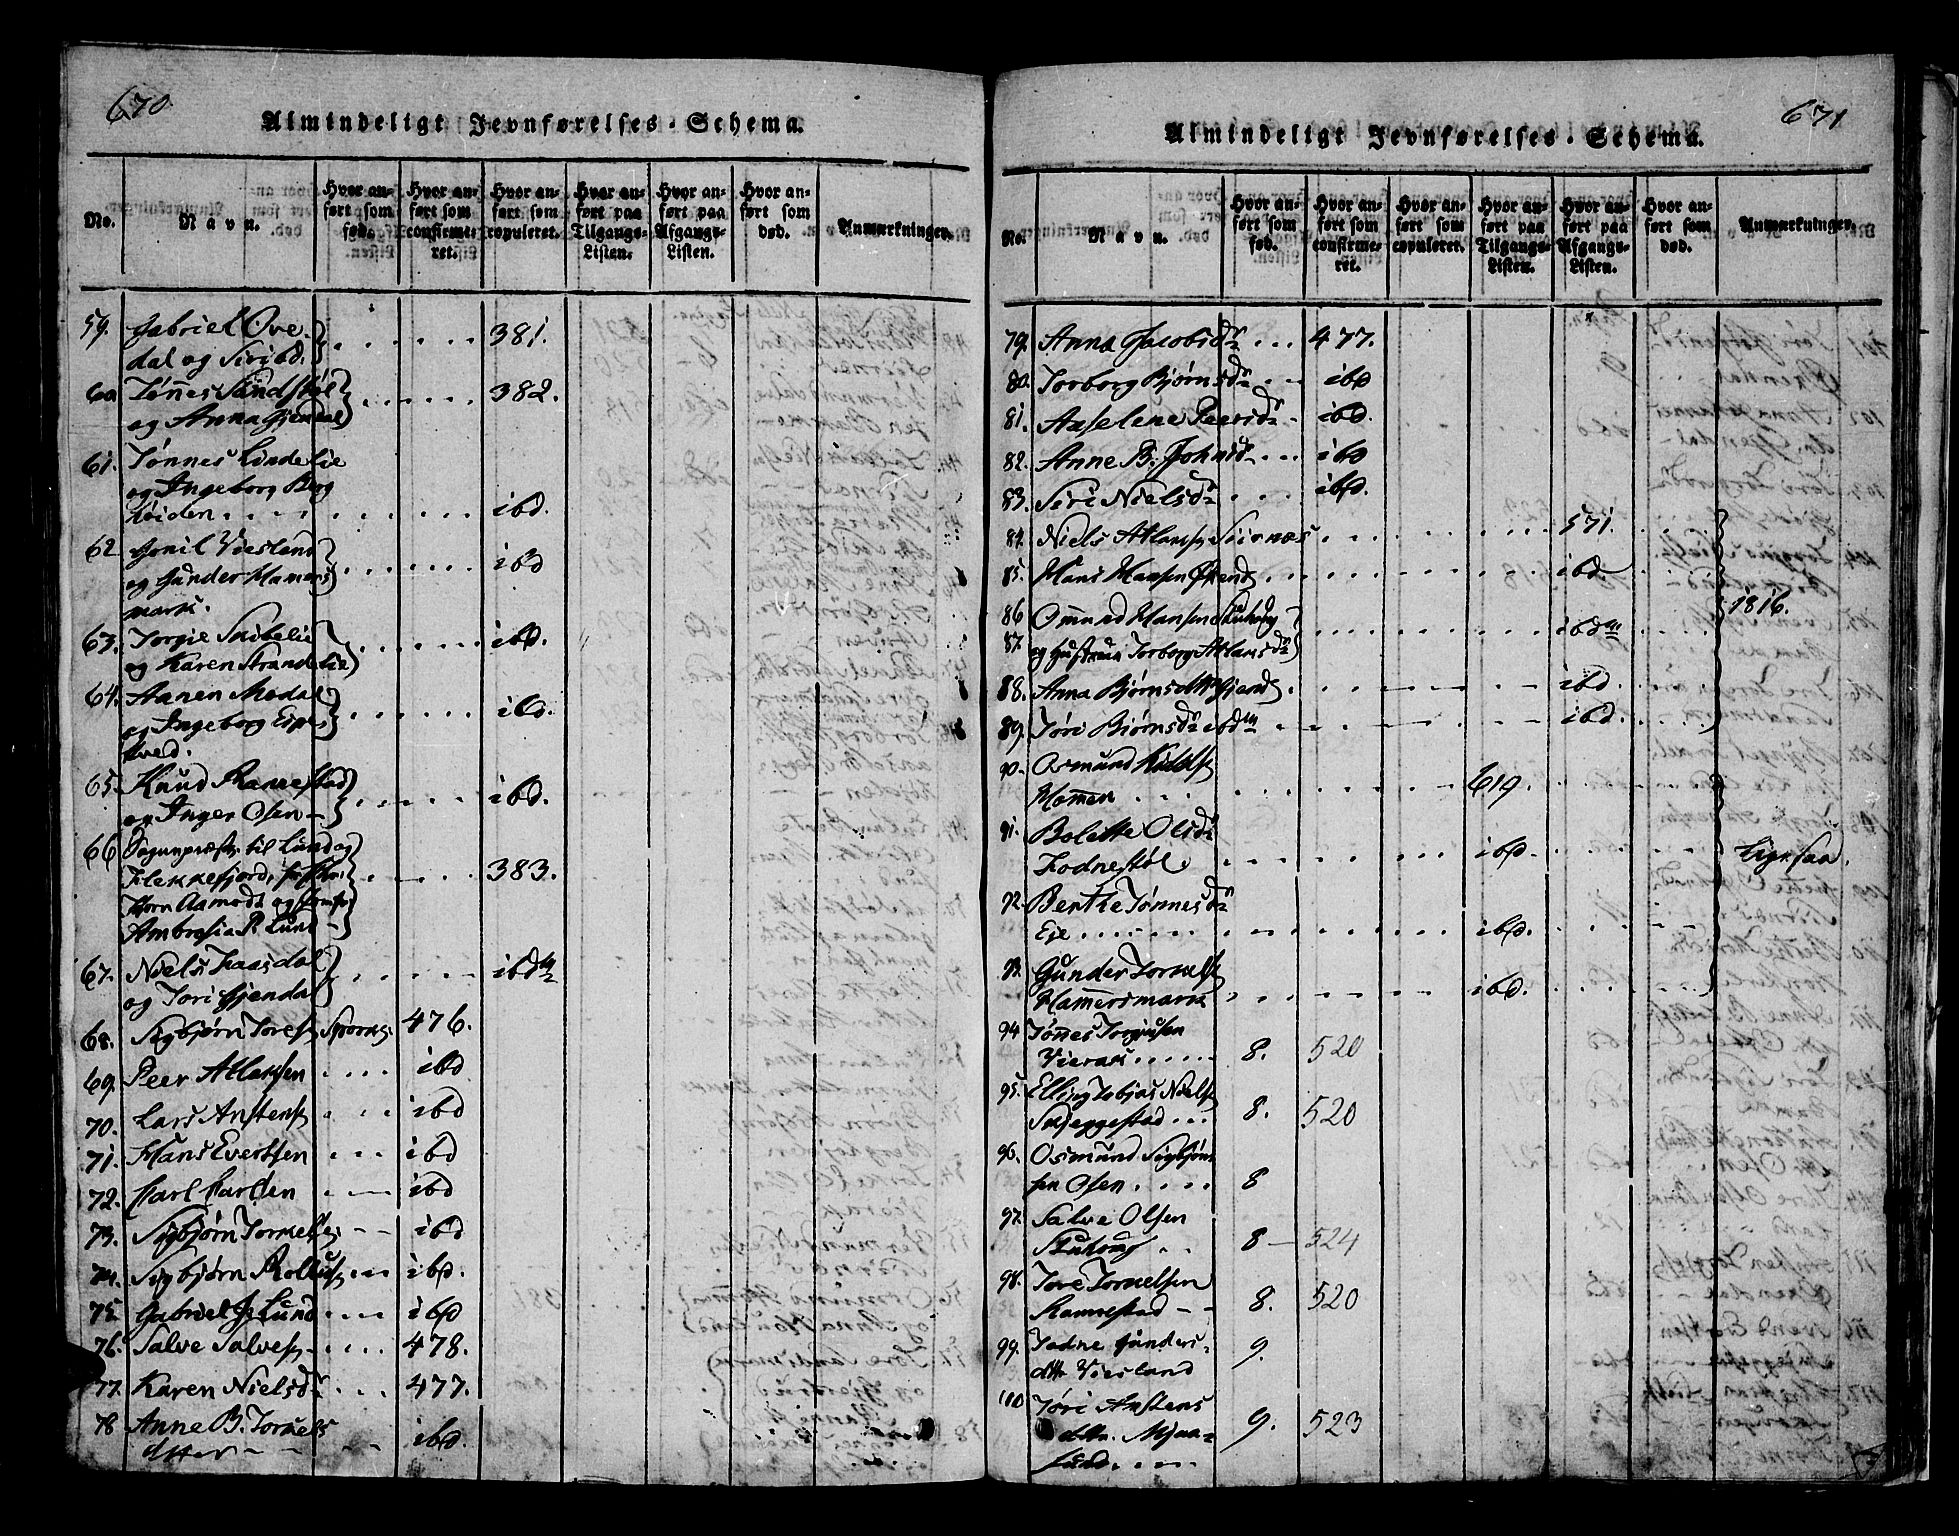 670
Almindeligt Jevnførelses-Schema.
No.
Navn.
Hvor an-
ført som
fød.
Hvor an-
ført som
confirme-
ret.
Hvor an-
ført som
copuleret.
Hvor an-
ført paa
Tilgangs-
Listen.
Hvor an-
ført paa
Afgangs-
Listen.
Hvor an-
ført som
død.
Anmærkninger.
59. Gabriel Ove
dal og Siri ibd. 381.
60 Tønnes Sandstøl
og Anna Gjendal 382.
61. Tønnes Lindelie
og Ingeborg Berg
høiden ibd.
62 Gunil Viesland
og Gunder Hamers
mark. ibd
63. Torgie Snibelie
og Karen Strandelie ibd.
64. Aanen Modal
og Ingeborg Eige
tved. ibd.
65. Knud Ramestad
og Inger Osen ibd.
66 Sognepræst til Lund og
Flekkefjord,
Horn Aamodt og
Ambrosia R Lund 383.
67. Niels Haasdal
og Tori Gjendal ibdm
68. Sigbjørn Toresen 476.
69. Peer Atlaksen ibd
70. Lars Anstens ibd
71. Hans Evertsen ibd
72. Carl Carlsen ibd
73. Sigbjørn Torkels ibd
74. Sigbjørn Rollufs ibd.
75. Gabriel J. Lund ibd
76. Salve Salves 478.
77. Karen Nielsdr 477.
78 Anne B. Torkels
datter ibd.
671
Almindeligt Jevnførelses-Schema.
No.
Navn.
Hvor an-
ført som
fød.
Hvor an-
ført som
confirme-
ret.
Hvor an-
ført som
copuleret.
Hvor an-
ført paa
Tilgangs-
Listen.
Hvor an-
ført paa
Afgangs-
Listen.
Hvor an-
ført som
død.
Anmærkninger.
79. Anna Jacobsdr 477.
80. Torborg Bjørnsdr ibd
81. Aaselene Peersdr ibd.
82. Anne B. Johnsd ibd
83. Siri Nielsdr ibd.
84. Niels Atlaks Seirnæs 571.
85. Hans Hansen ibd
1816.
86 Omund Hansen Stuhoug
87. og Hustrue Torborg Atlaksdr ibdm
88. Anna Bjørnsdttr Gjend ibd.
89. Tori Bjørnsdr ibdm ibd.
90. Osmund Kittels
Mommen 619.
91. Bolette Olsdr
Hodnestøl ibd. Ligesaa.
92. Berthe Tønnesdr
Eje ibd.
93. Gunder Torkels
Hamersmark ibd.
94 Tønnes Torgiusen
Vieraas 8. 520
95. Elling Tobias Niels
Skjeggestad 8. 520
96. Osmund Sigbjørn
sen Osen 8
97. Salve Olsen
Stuhoug 8 524
98. Tore Torkelsen
Ramestad 8. 520
99. Todne Gunders
dtr Viesland 9.
100 Tori Anstens
dattr. Mjaa-
sund 9. 523